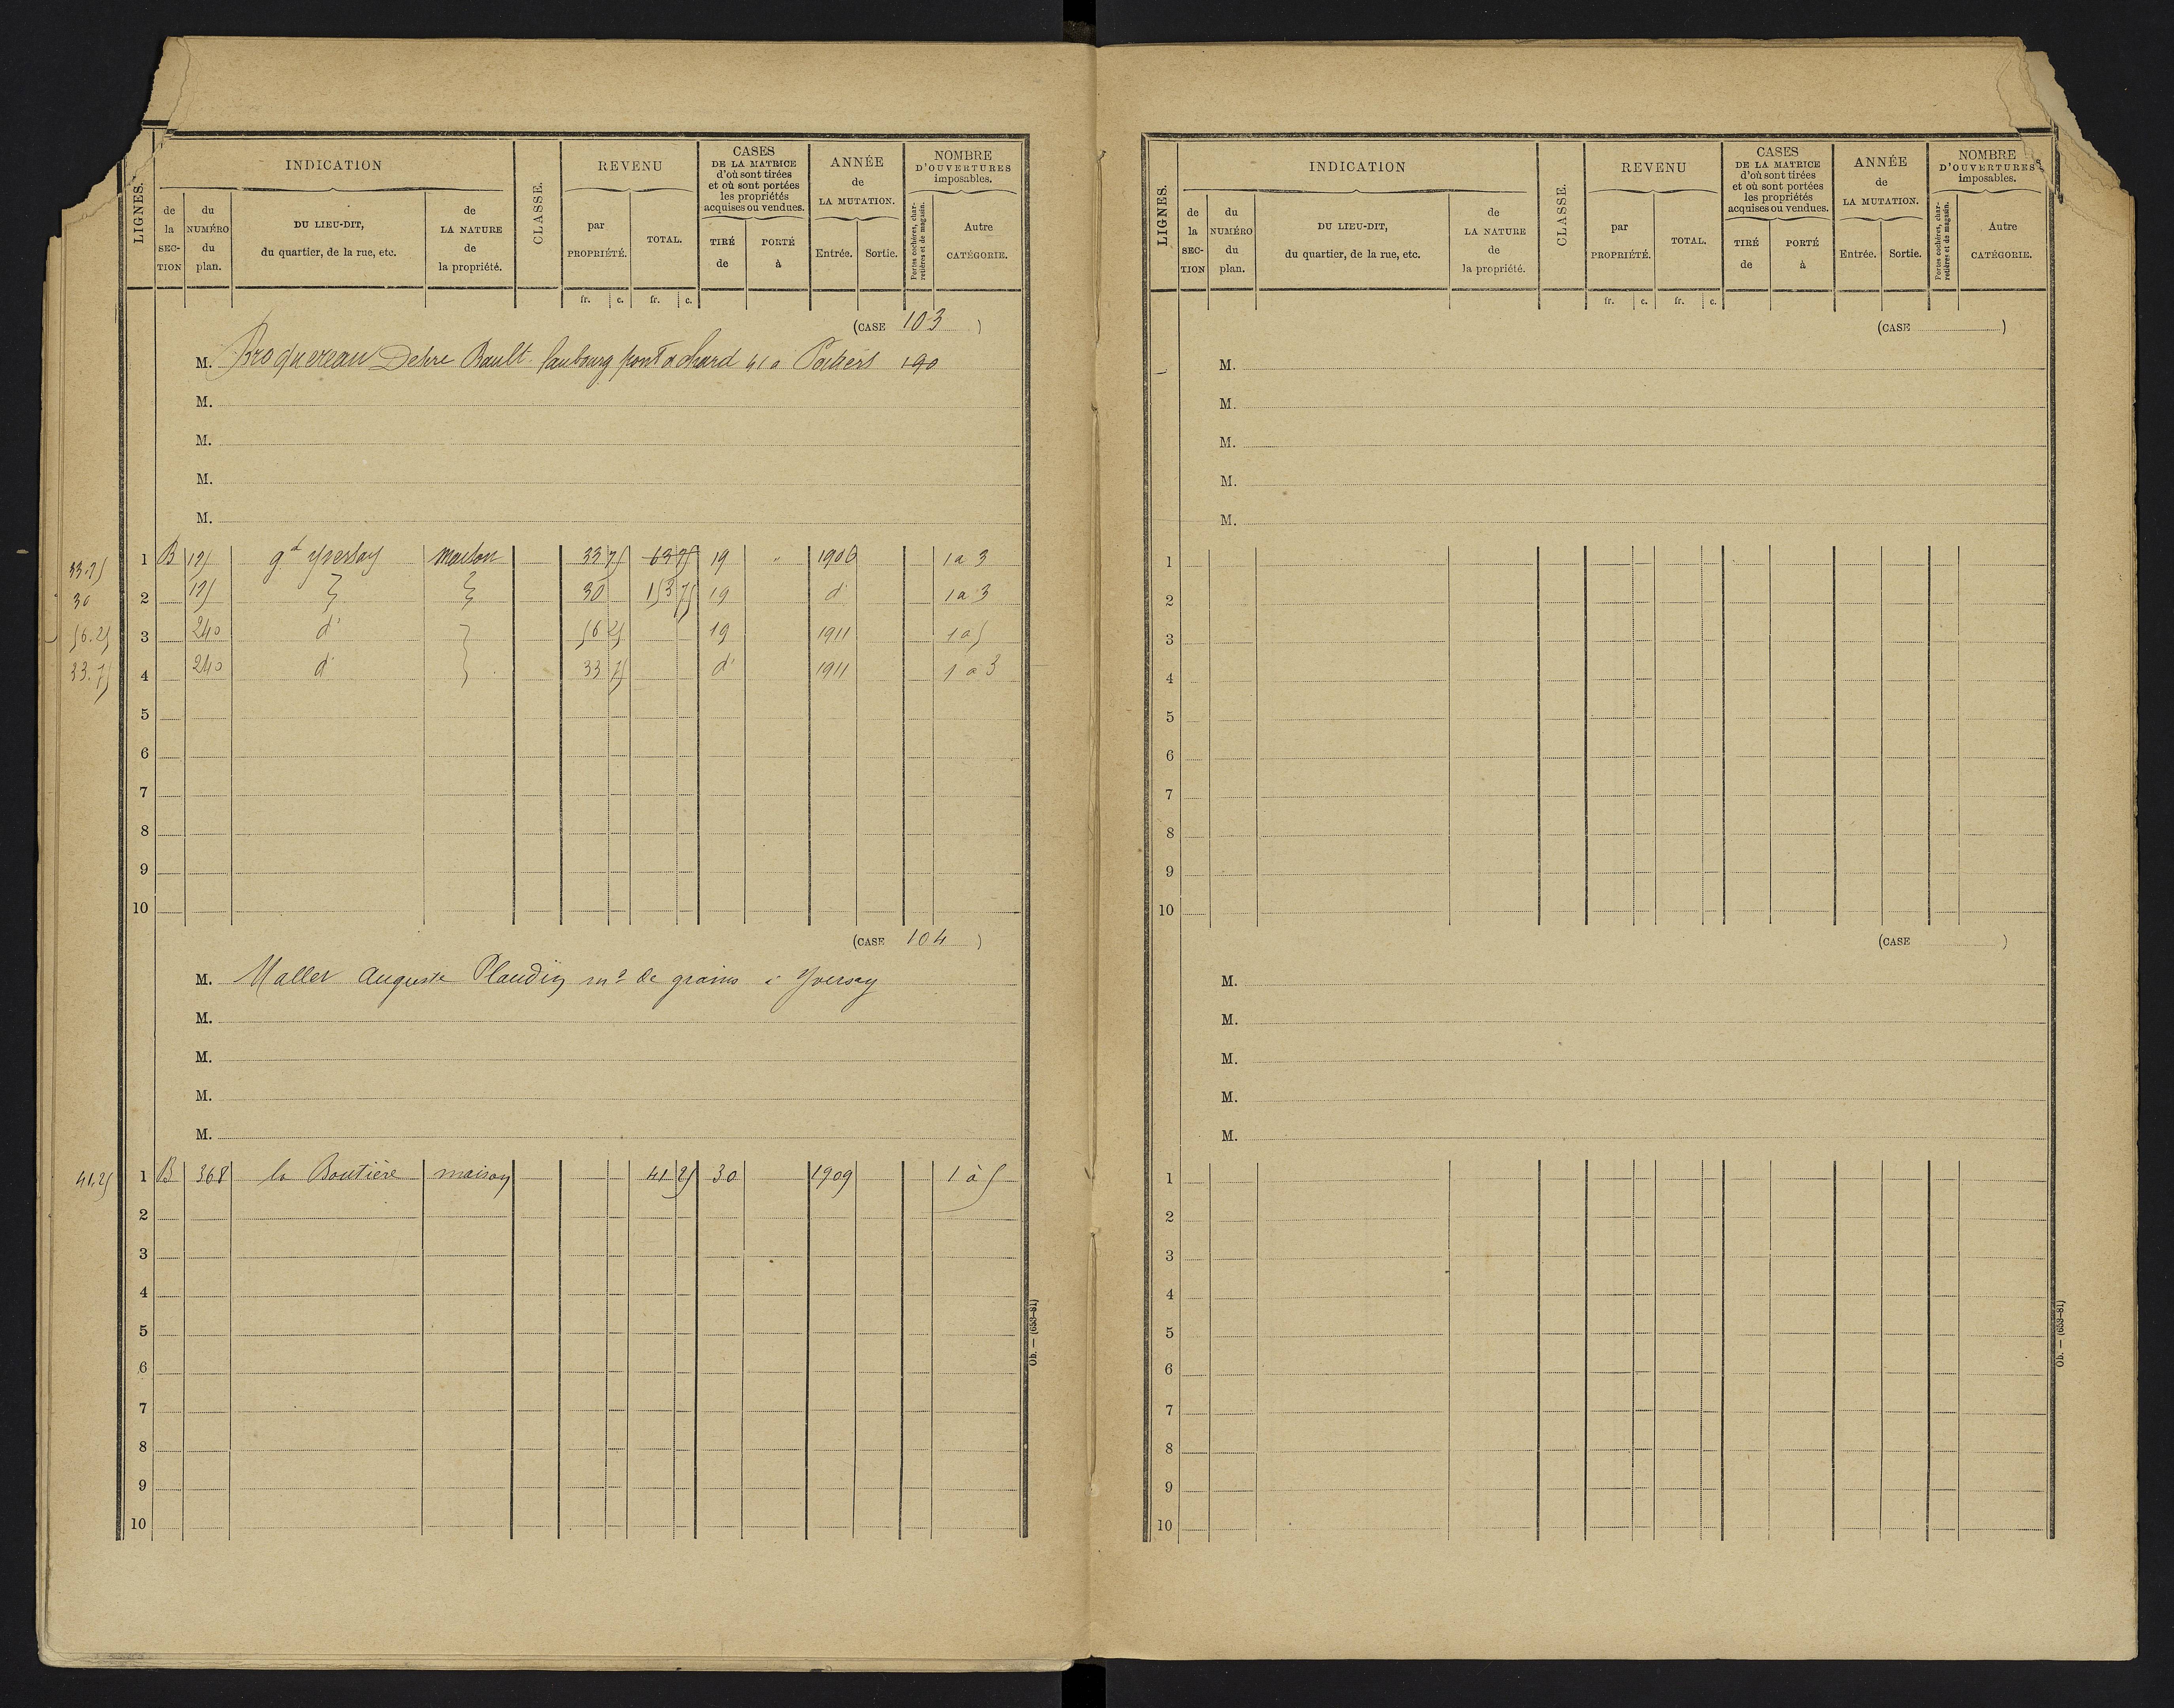 LIGNES. INDICATION CLASSE. REVENU CASES DE LA MATRICE d'où sont tirées et où sont portées les propriétés acquises ou vendues. ANNÉE de LA MUTATION. NOMBRE D'OUVERTURES imposables.
de la SECTION du NUMÉRO du plan. DU LIEU-DIT, du quartier, de la rue, etc. de LA NATURE de la propriété. par PROPRIÉTÉ. TOTAL. TIRÉ de PORTÉ à Entrée. Sortie. Portes cochères, charretières et de magasin. Autre CATÉGORIE.
fr. c. fr. c.
(CASE 103 )
M. Broquereau Rault faubourg pont achard 41 a Poitiers 190
M.
M.
M.
M.
33.75 1 B 125 gd Yversay maison 33 75 63 75 19 " 1906 1 a 3
30 2 125 30 153 75 19 d° 1 a 3
56.25 3 240 d° 56 25 19 1911 1 a 5
33.75 4 240 d° 33 75 d° 1911 1 a 3
5
6
7
8
9
10
(CASE 104 )
M. Mallet Auguste Plaudin md de grains à Yversay
M.
M.
M.
M.
41.25 1 B 368 la Boutière maison 41 25 30 1909 1 à 5
2
3
4
5
6
7
8
9
10
Ob. — (653-81)
LIGNES. INDICATION CLASSE. REVENU CASES DE LA MATRICE d'où sont tirées et où sont portées les propriétés acquises ou vendues. ANNÉE de LA MUTATION. NOMBRE D'OUVERTURES imposables.
de la SECTION du NUMÉRO du plan. DU LIEU-DIT, du quartier, de la rue, etc. de LA NATURE de la propriété. par PROPRIÉTÉ. TOTAL. TIRÉ de PORTÉ à Entrée. Sortie. Portes cochères, charretières et de magasin. Autre CATÉGORIE.
fr. c. fr. c.
(CASE )
M.
M.
M.
M.
M.
1
2
3
4
5
6
7
8
9
10
(CASE )
M.
M.
M.
M.
M.
1
2
3
4
5
6
7
8
9
10
Ob. — (653-81)